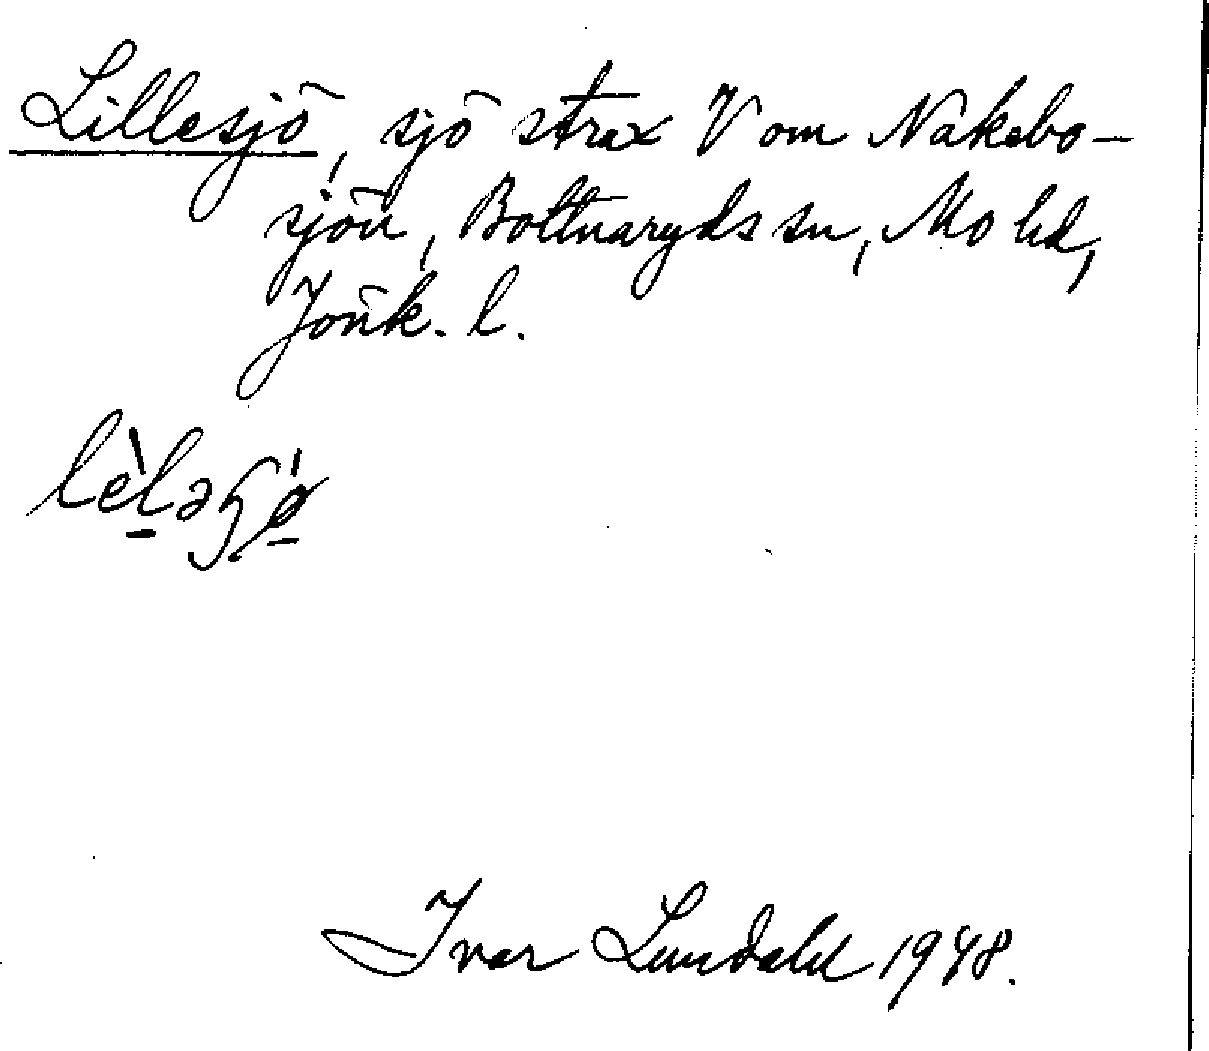 Lillesjö, sjö strax V om Nakebo-
sjön, Bottnaryds sn, Mo hd,
Jönk. l.
Ivar Lundahl 1948.